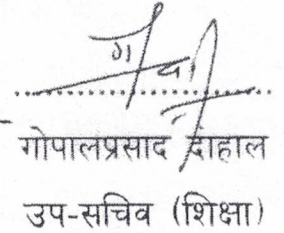 गोपालप्रसाद दाहाल
उप-सचिव (शिक्षा)